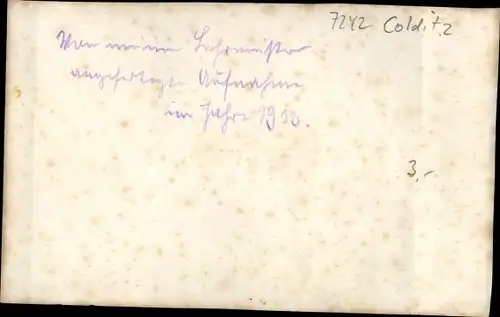 7242 Colditz
Von meinem Lehrmeister
angefertigte Aufnahme
im Jahre 1913.
3,-